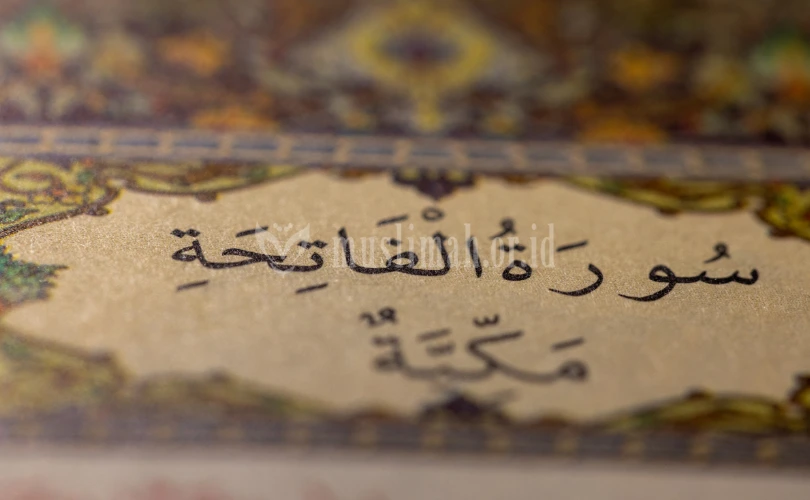 سُورَةُ الْفَاتِحَةِ
مَكِّيَّةٌ
muslimah.or.id